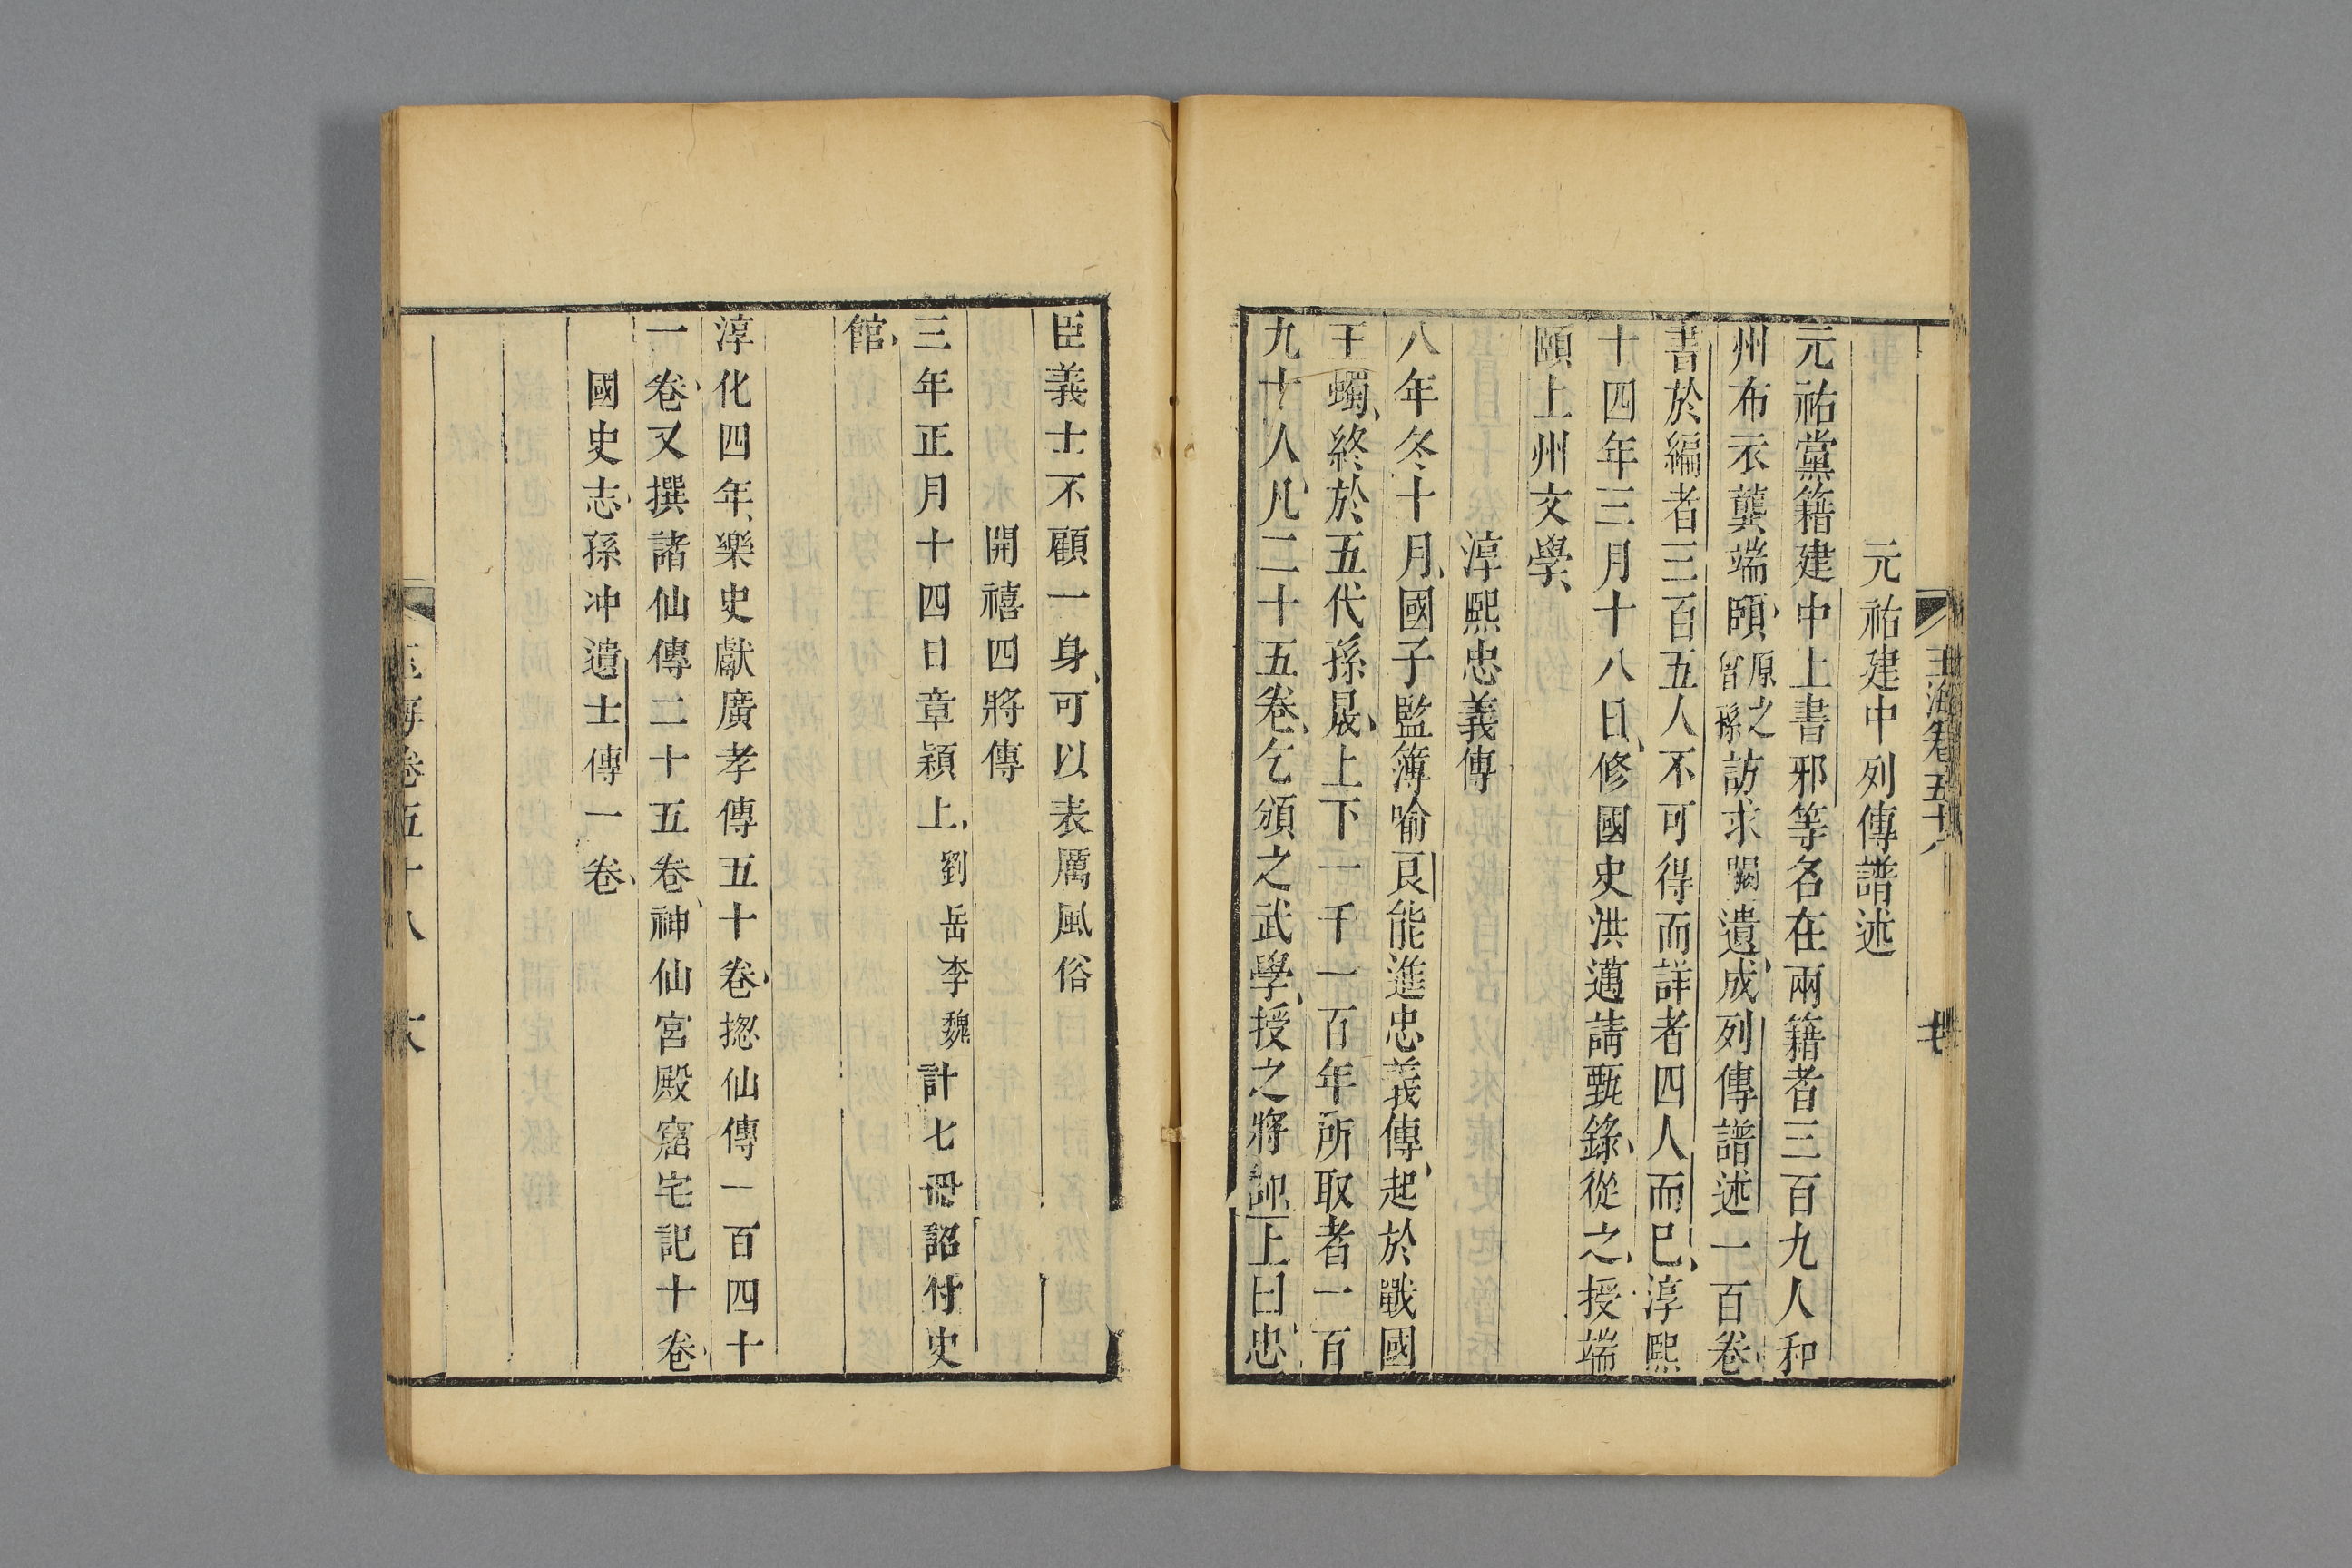 元祐建中列傳譜述
元祐黨籍建中上書邪等名在兩籍者三百九人和
州布衣龔端頤原之曾孫訪求闕遺成列傳譜述一百卷
書於編者三百五人不可得而詳者四人而已淳熙
十四年三月十八日修國史洪邁請甄錄從之授端
頤上州文學
淳熙忠義傳
八年冬十月國子監簿喻良能進忠義傳起於戰國
王蠋終於五代孫晟上下一千一百年所取者一百
九十人凡二十五卷乞頒之武學授之將上曰忠
臣義士不顧一身可以表厲風俗
開禧四將傳
三年正月十四日章穎上劉岳李魏計七冊詔付史
館
淳化四年樂史獻廣孝傳五十卷揔仙傳一百四十
一卷又撰諸仙傳二十五卷神仙宮殿窟宅記十卷
國史志孫冲遺士傳一卷
玉海卷五十八
卷五十八